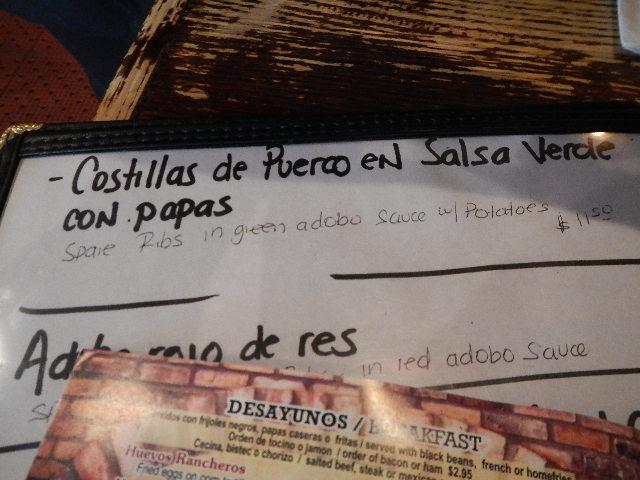 - Costillas de Puerco EN Salsa Verde
CON papas
Spare Ribs in green adobo sauce w/ Potatoes $11.50
rojo de res
in red adobo sauce
DESAYUNOS / BREAKFAST
con frijoles negros, papas caseras o fritas / served with black beans, french or homefries
Orden de tocino o jamon / order of bacon or ham $2.95
Cecina, bistec o chorizo / salted beef, steak or
Huevos Rancheros
Fried eggs on